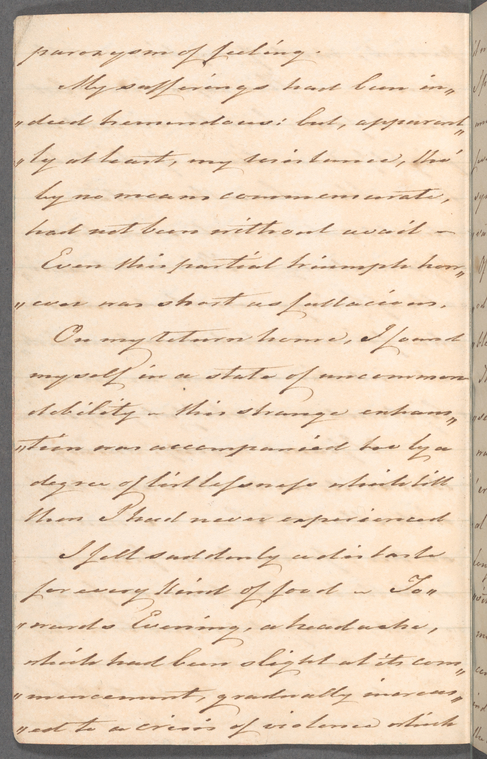 paroxysm of feeling.
My sufferings had been in„
„deed tremendous: but, apparent„
„ly at least, my resistance, tho'
by no means commensurate,
had not been without avail –
Even this partial triumph how„
„ever was short as fallacious.
On my return home, I found
myself in a state of uncommon
debility – this strange exhaus„
„tion was accompanied too by a
degree of listlessness which till
then I had never experienced
I felt suddenly a distaste
for every kind of food – To„
„wards Evening, a headache,
which had been slight at its com„
„mencement, gradually increas„
„ed to a crisis of violence which